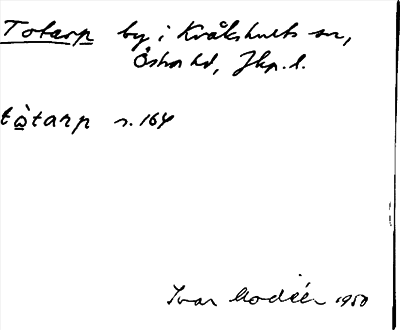 Totarp by i Kråkshults sn,
Östra hd, Jkp. l.
tò̲tarp s. 164
Ivar Modéer 1950